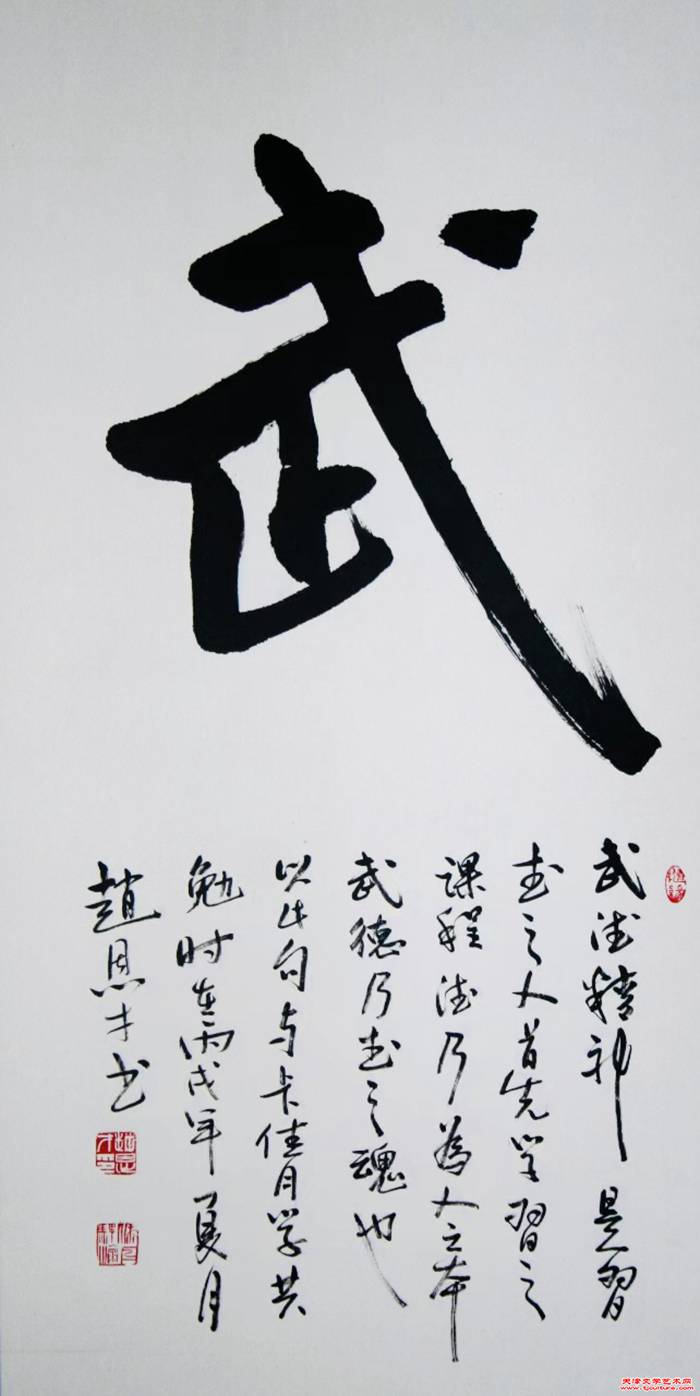 武
武德精神是習
武之人首先学習之
课程德乃為人之本
武德乃武之魂也
以此句与卡佳月学共
勉时在丙戌年夏月
趙恩才书
天津文学艺术网
www.tjculture.com